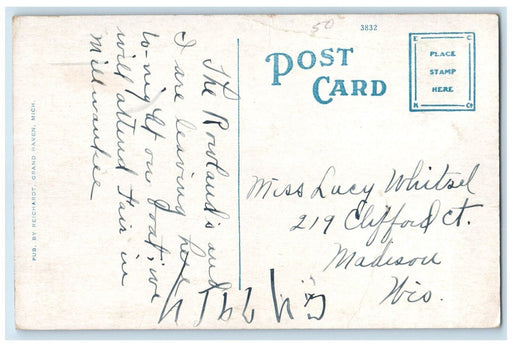 50
3832
POST
CARD
E C
PLACE
STAMP
HERE
K Co
PUB. BY REICHARDT, GRAND HAVEN, MICH.
The Rowland's and
I are leaving here
to-night on boat; we
will attend Fair in
Milwaukee
Miss Lucy Whitsel
219 Clifford Ct.
Madison
Wis.